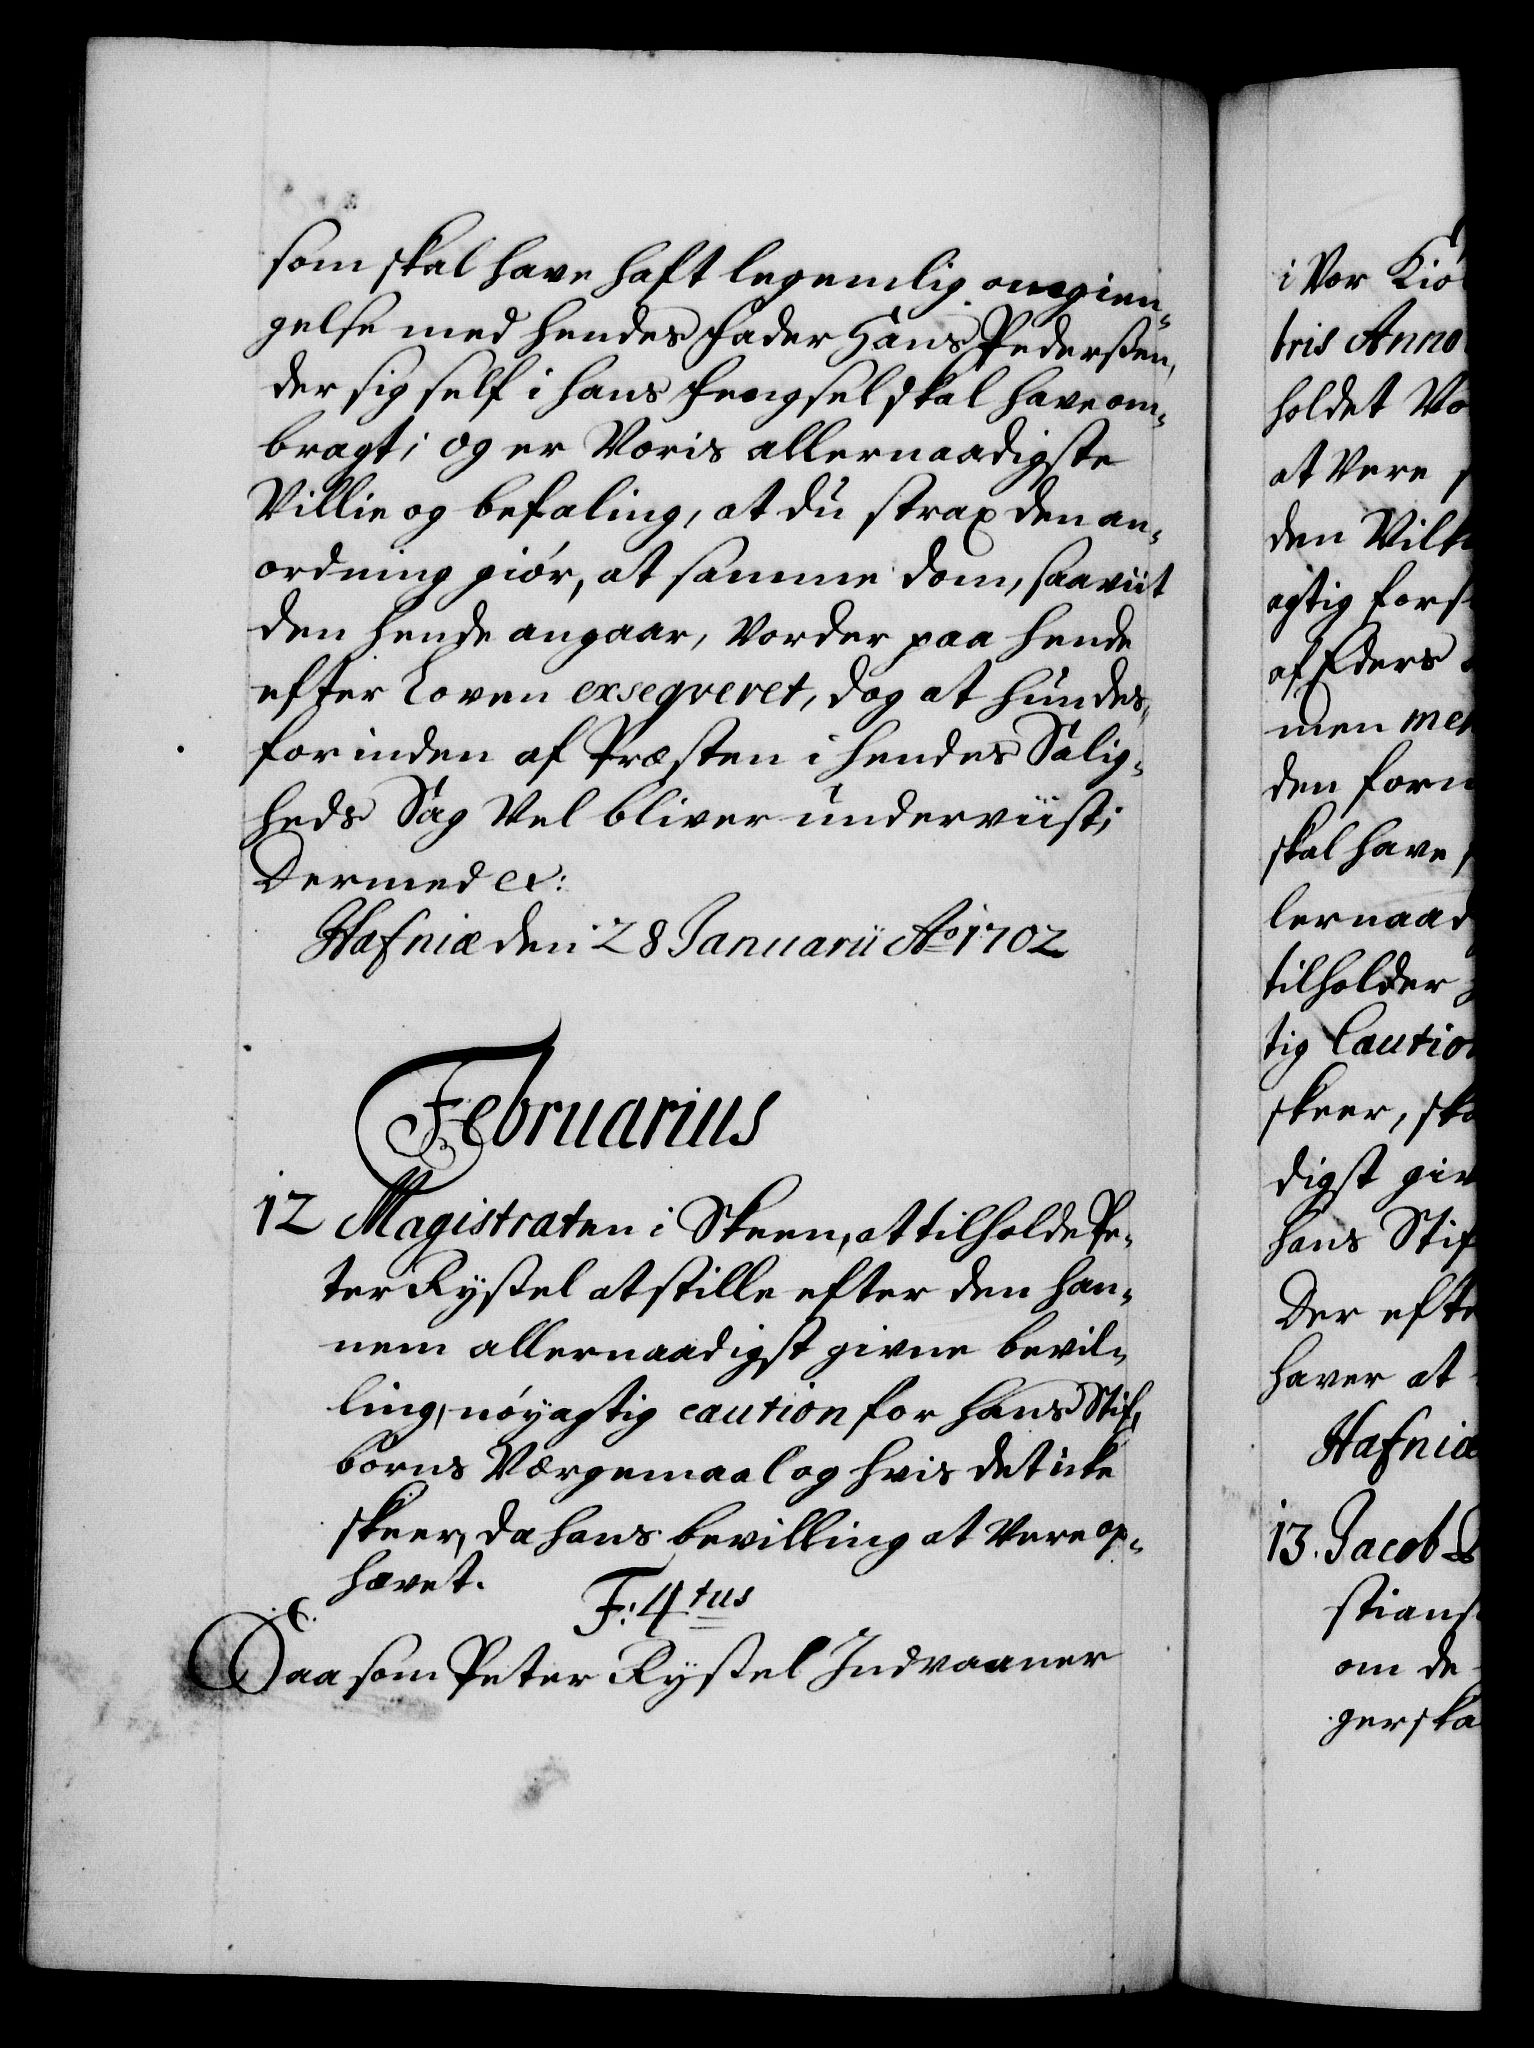 som skal have haft legemlig omgien-
gelse med hendes Fader Hans Pederssen,
der sig self i hans fengsel skal have om-
bragt; og er Voris allernaadigste
Villie og befaling, at du strax den an-
ordning giör, at samme dom, saaviit
den hende angaar, Vorder paa hende
efter Loven exseqveret, dog at hun des-
forinden af Præsten i hendes Salig-
heds Sag Vel bliver underviist;
Dermed ex:
Hafniæ den 28 Januarii Ao 1702
Februarius
12 Magistraten i Skeen, at tilholde Pe-
ter Ryssel at stille efter den han-
nem allernaadigst givne bevil-
ling, nöyagtig caution for hans Stif-
börns Værgemaal og hvis det icke
skeer, da hans bevilling at Vere op-
hævet.
F: 4tus
Saa som Peter Ryssel Indvaaner
i Vor Kiö
bris Anno
holdet Vo
at Vere
den Vilk
agtig fors
af Eders
men me
den forn
skal have
lernaad
tilholder
tig Cautio
skeer, ska
digst giv
hans Stif
Der efte
haver at
Hafniæ
13. Jacob
stians
om de
gerska